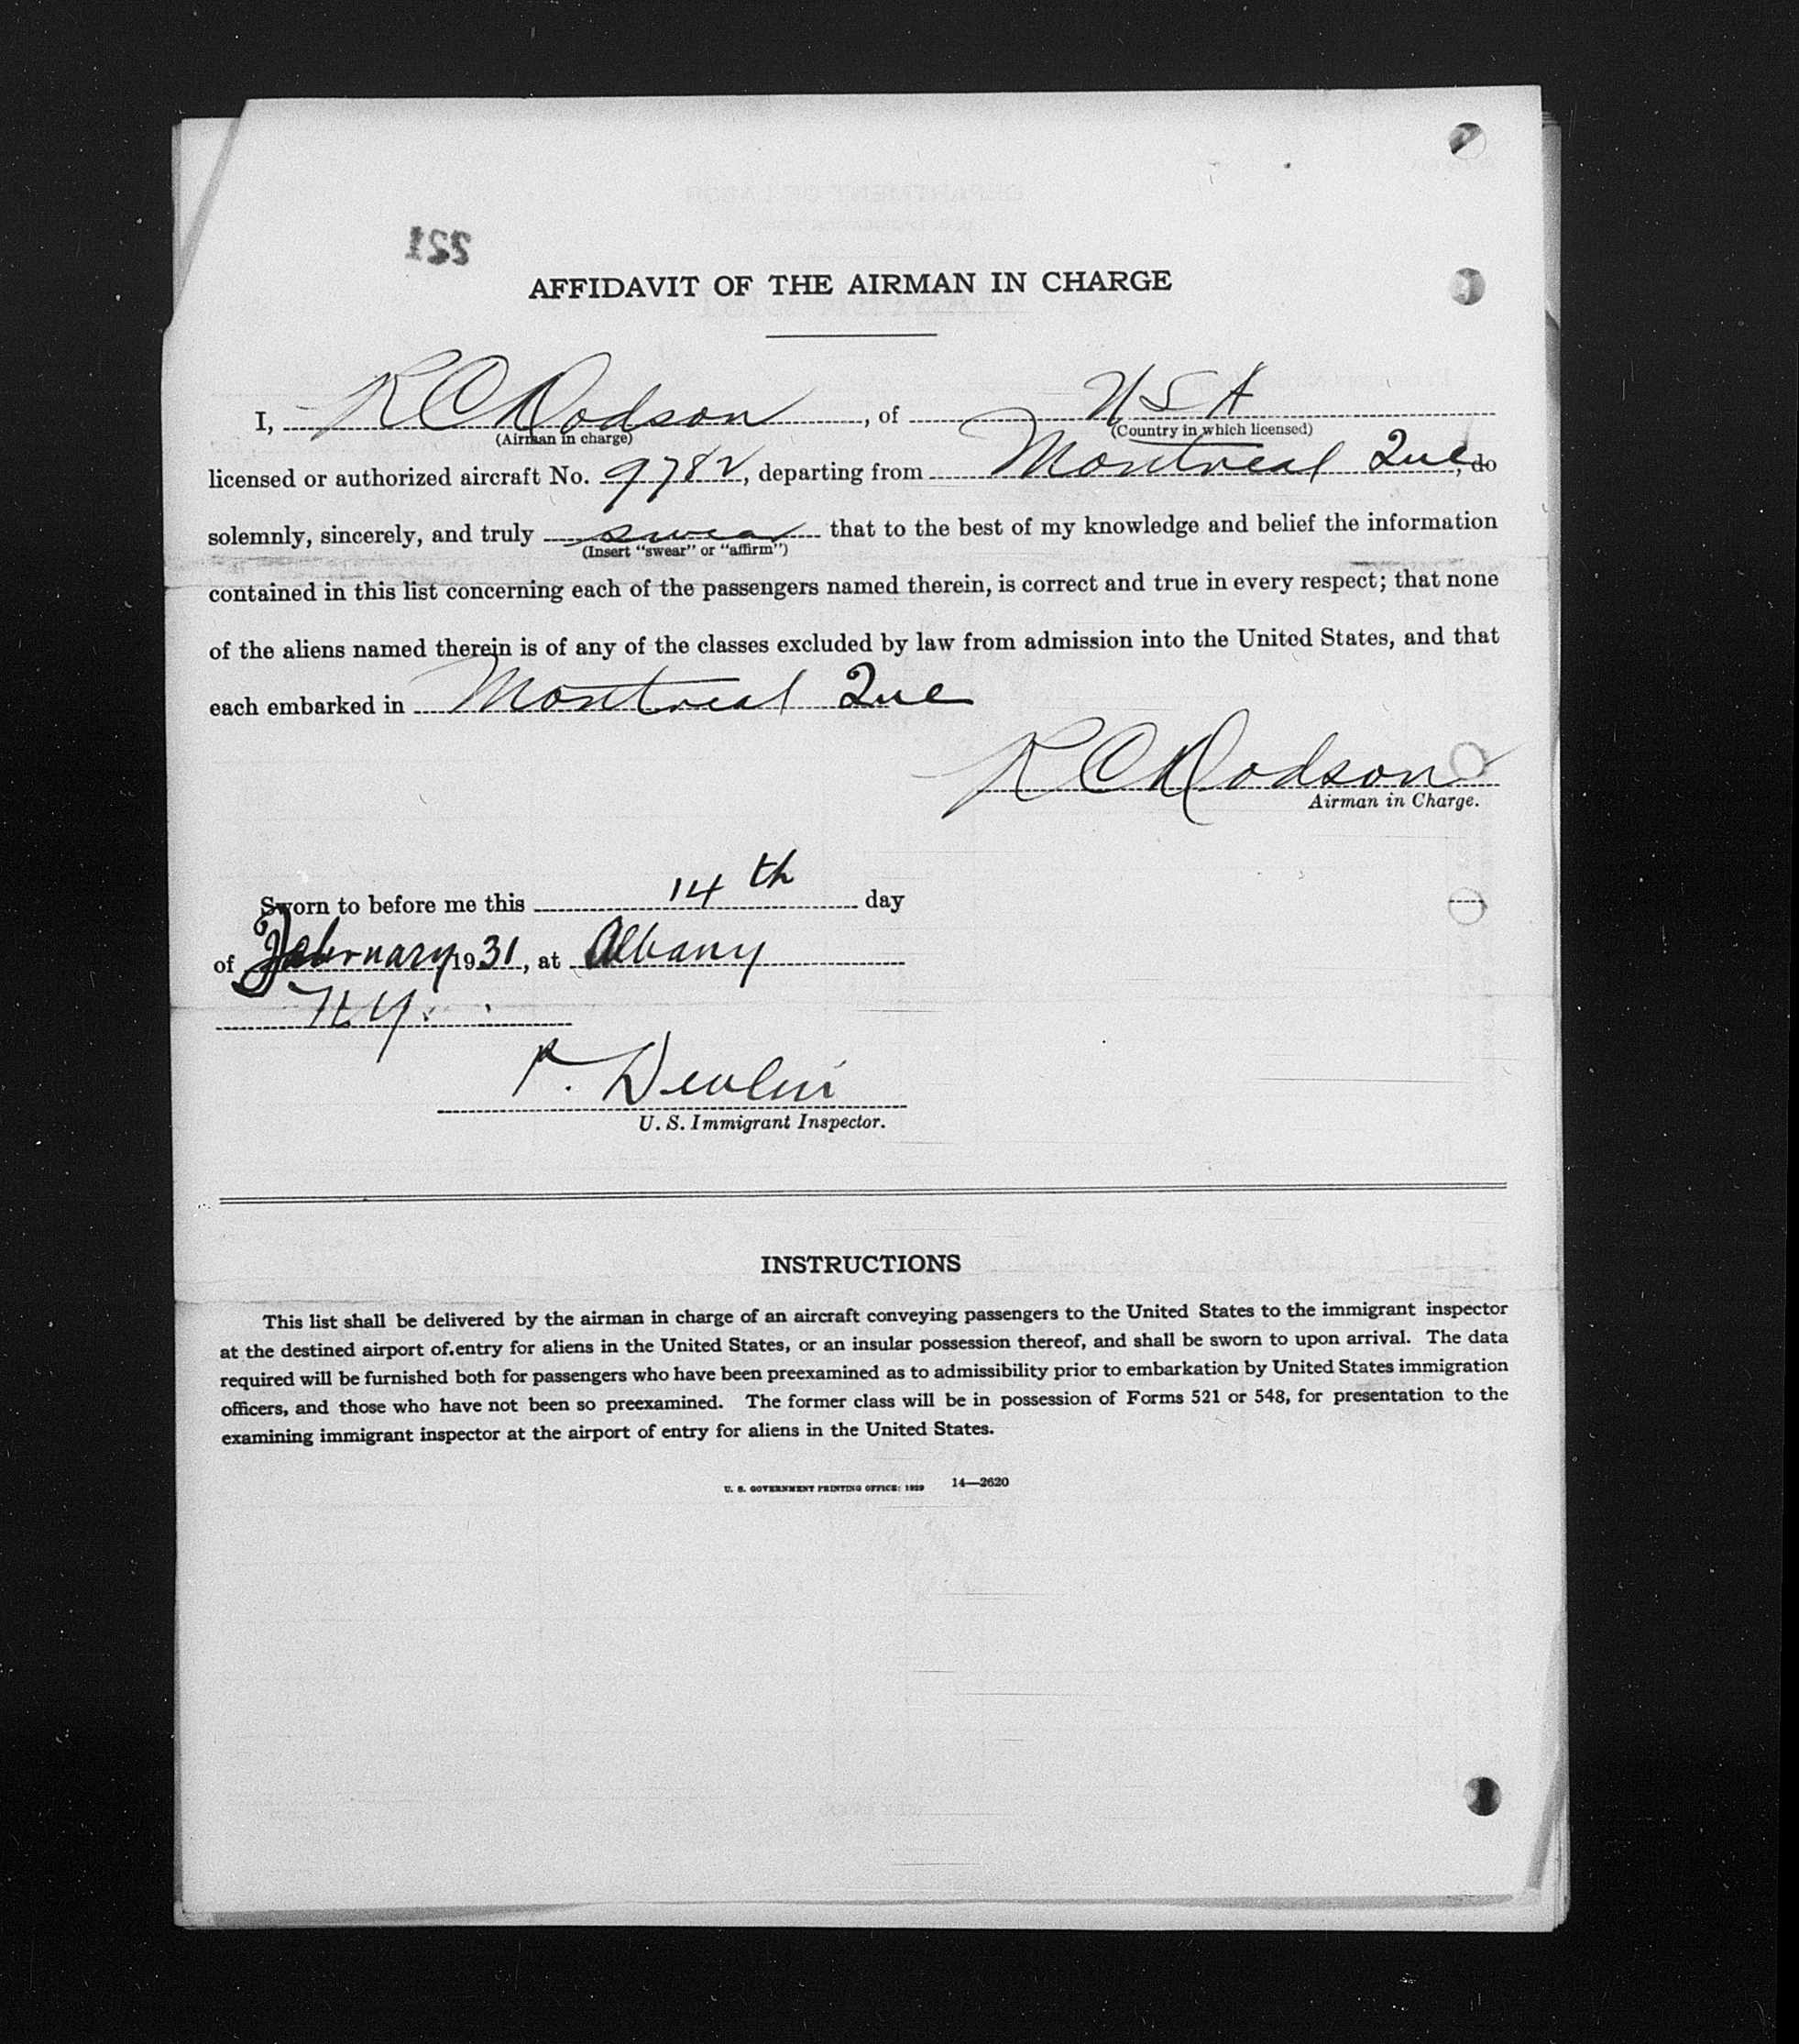 221
AFFIDAVIT OF THE AIRMAN IN CHARGE
I, R C Dodson, of USA
(Airman in charge) (Country in which licensed)
licensed or authorized aircraft No. 9782, departing from Montreal Que, do
solemnly, sincerely, and truly swear that to the best of my knowledge and belief the information
(Insert "swear" or "affirm")
contained in this list concerning each of the passengers named therein, is correct and true in every respect; that none
of the aliens named therein is of any of the classes excluded by law from admission into the United States, and that
each embarked in Montreal Que
R C Dodson
Airman in Charge.
Sworn to before me this 14th day
of February 1931, at Albany
N.Y.
P. Devlin
U. S. Immigrant Inspector.
INSTRUCTIONS
This list shall be delivered by the airman in charge of an aircraft conveying passengers to the United States to the immigrant inspector
at the destined airport of entry for aliens in the United States, or an insular possession thereof, and shall be sworn to upon arrival. The data
required will be furnished both for passengers who have been preexamined as to admissibility prior to embarkation by United States immigration
officers, and those who have not been so preexamined. The former class will be in possession of Forms 521 or 548, for presentation to the
examining immigrant inspector at the airport of entry for aliens in the United States.
U. S. GOVERNMENT PRINTING OFFICE: 1929 14—2620